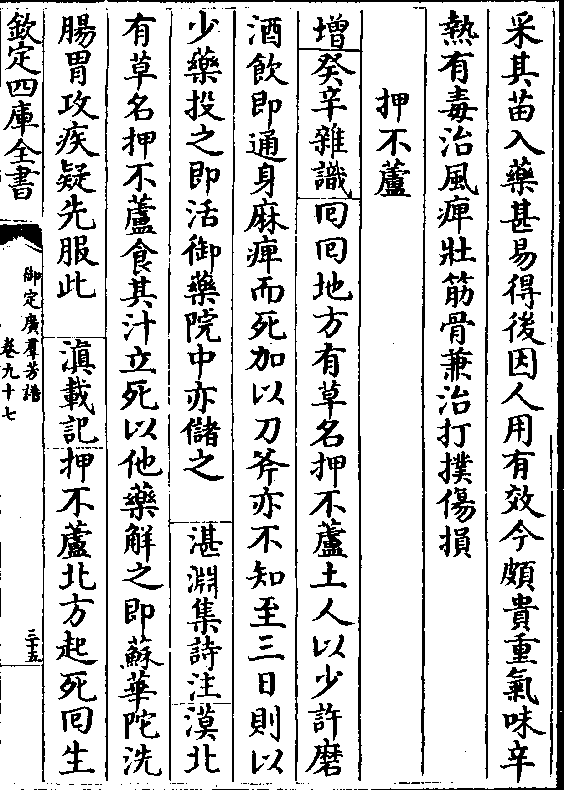 采其苗入藥甚易得後因人用有效今頗貴重氣味辛
熱有毒治風痺壯筋骨兼治打撲傷損
押不蘆
增癸辛雜識回回地方有草名押不蘆土人以少許磨
酒飲即通身麻痺而死加以刀斧亦不知至三日則以
少藥投之即活御藥院中亦儲之　湛淵集詩注漠北
有草名押不蘆食其汁立死以他藥解之即蘇華陀洗
腸胃攻疾疑先服此　滇載記押不蘆北方起死回生
欽定四庫全書
御定廣羣芳譜
卷九十七
三十五